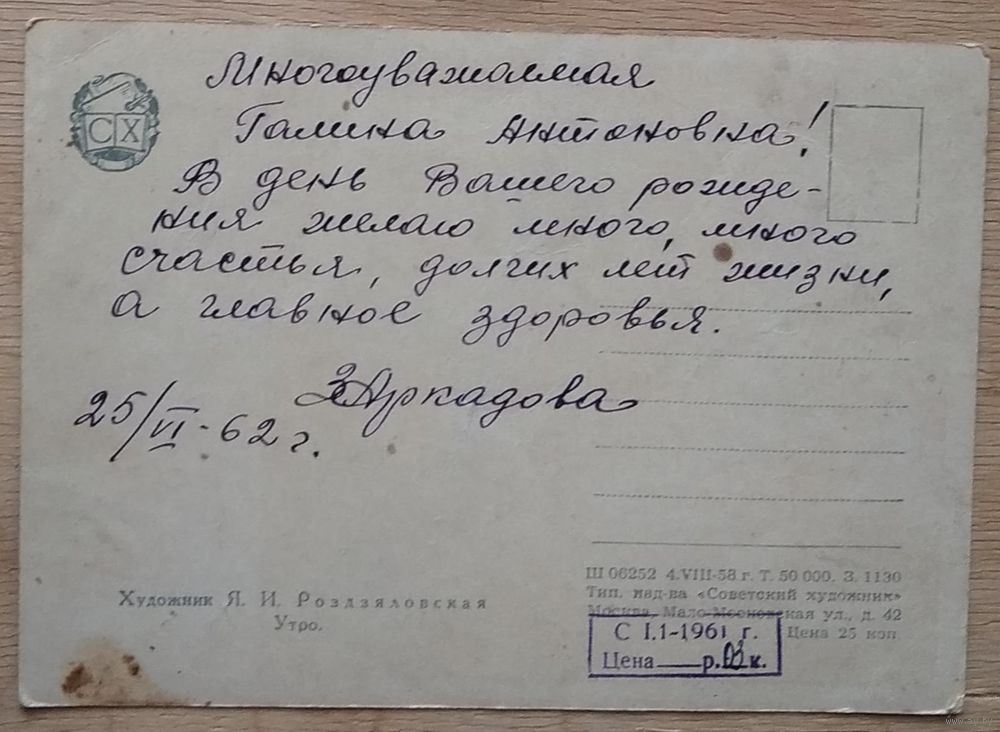 СХ
Многоуважаемая
Галина Антоновна!
В день Вашего рожде-
ния желаю много, много
счастья, долгих лет жизни,
а главное здоровья.
ЗАркадова
25/VI-62 г.
Художник Я. И. Роздзяловская
Утро.
Ш 06252 4.VIII-58 г. Т. 50 000. З. 1130
Тип. изд-ва «Советский художник»
Москва, Мало-Московская ул., д. 42
Цена 25 коп.
С I.1-1961 г.
Цена р. 03 к.
www.ay.by